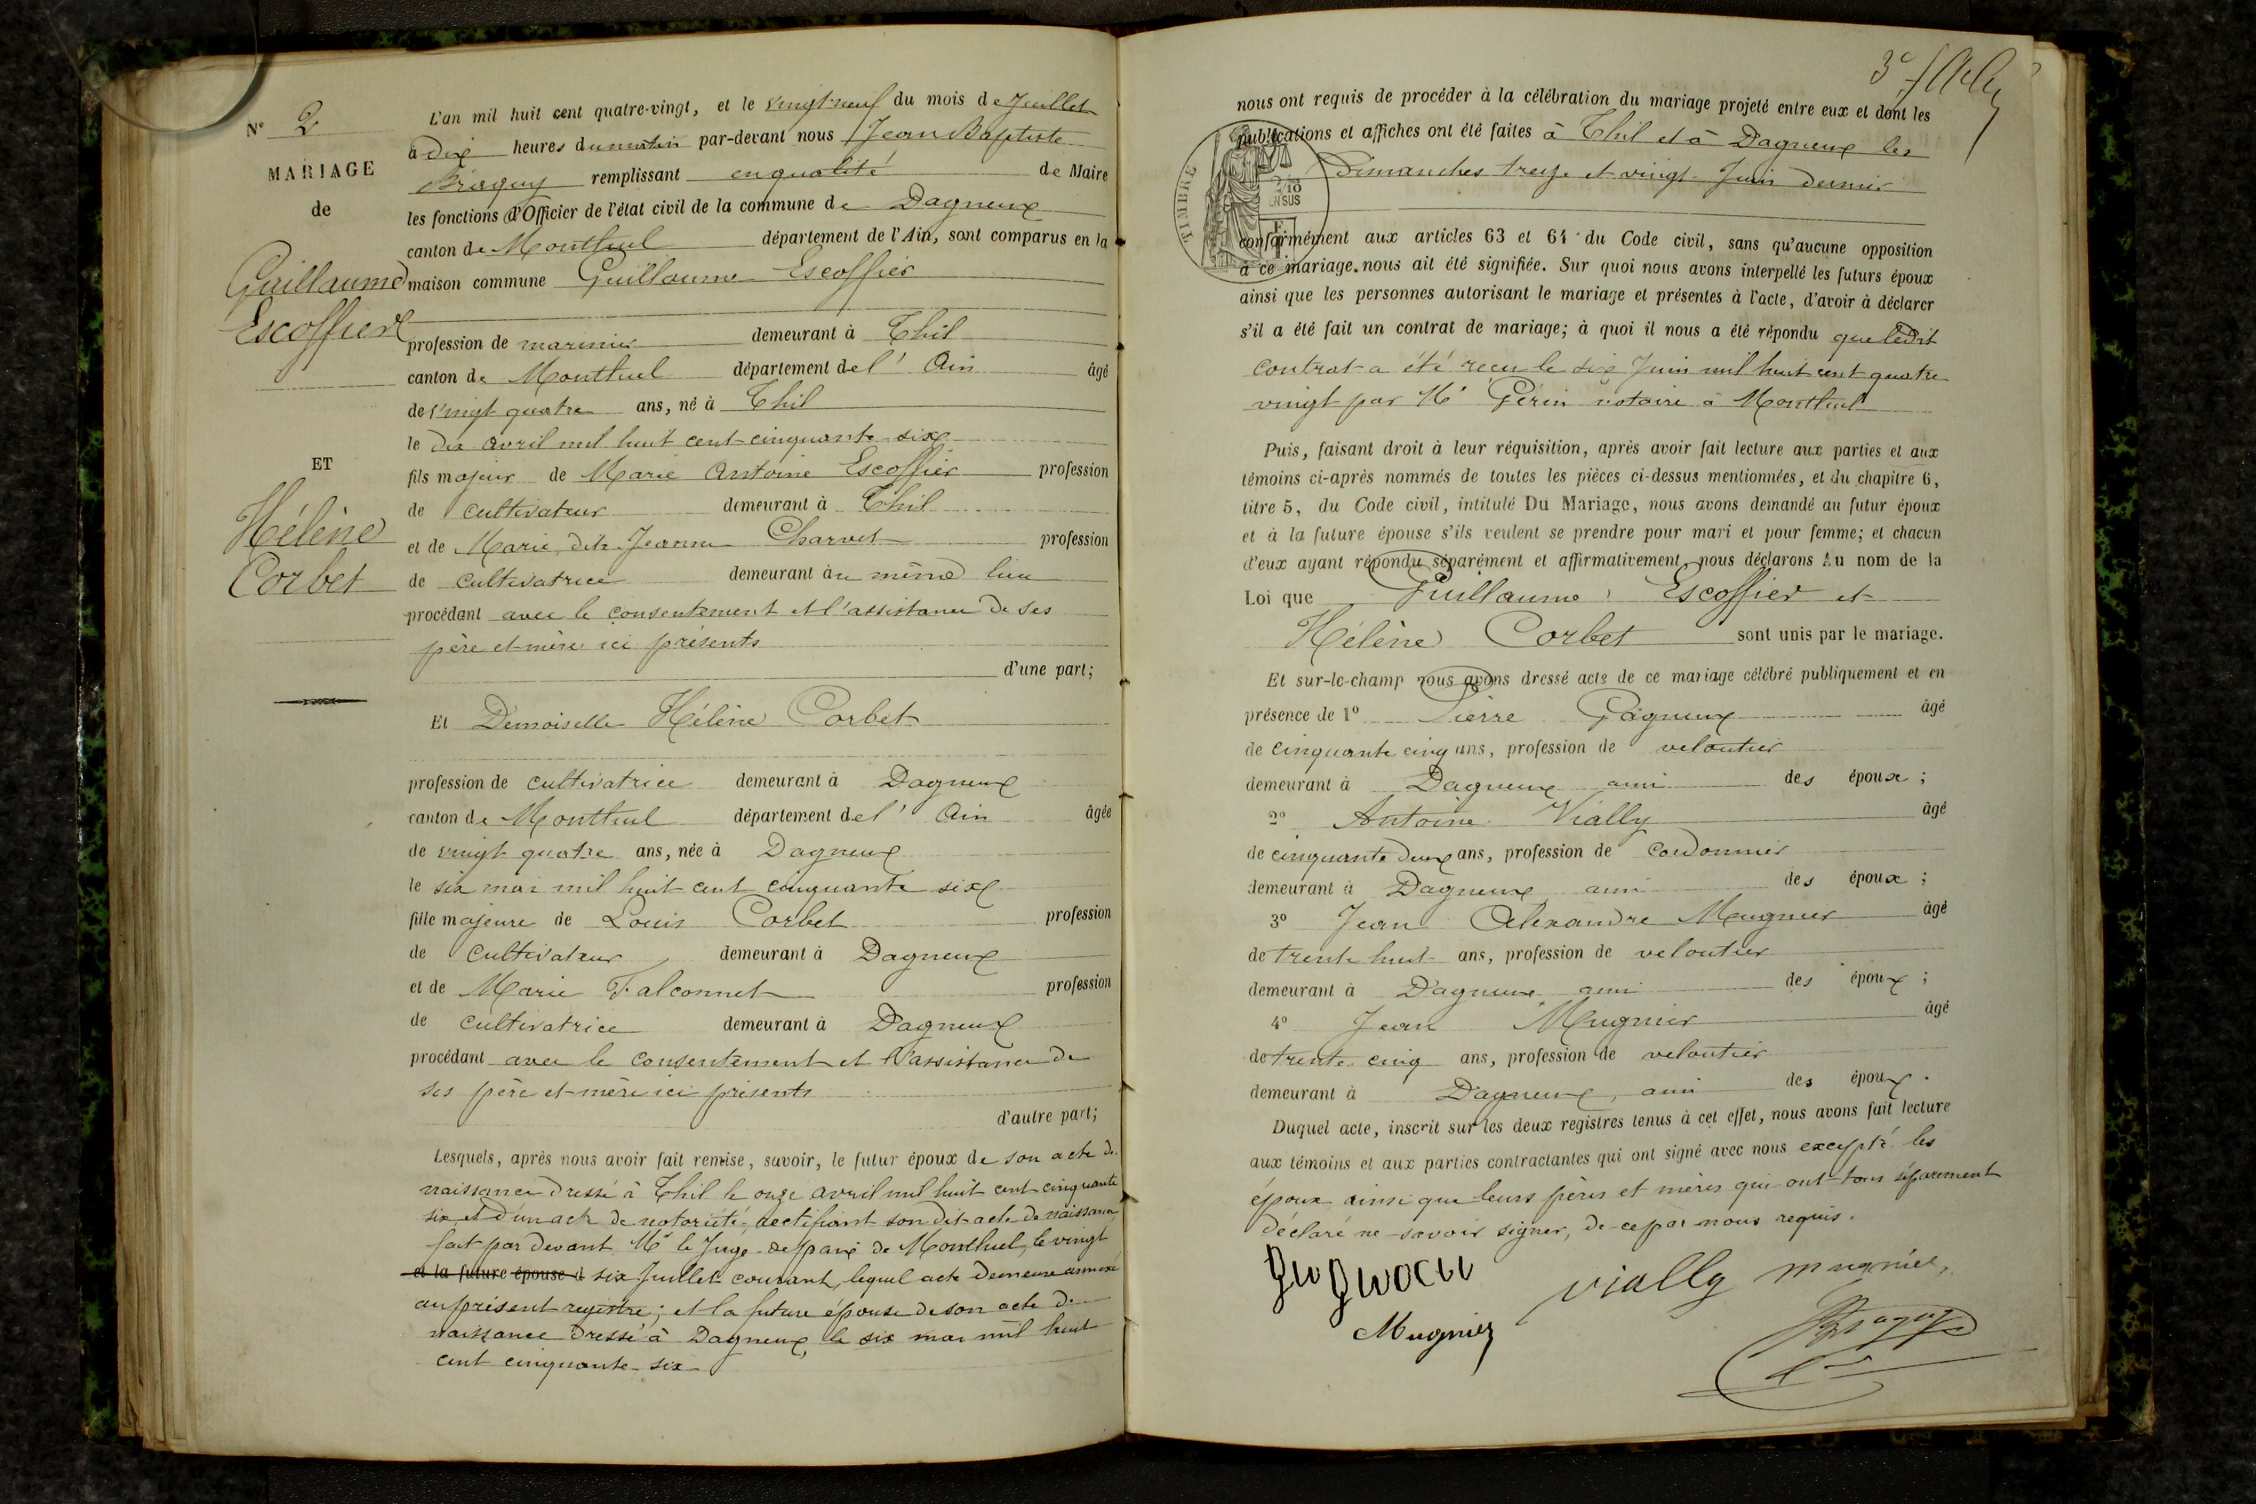 N° 2
MARIAGE
de
Guillaume
Escoffier
ET
Hélène
Corbet
L'an mil huit cent quatre-vingt, et le vingt neuf du mois de Juillet
à dix heures du matin par-devant nous Jean Baptiste
Braguy remplissant en qualité de Maire
les fonctions d'Officier de l'état civil de la commune de Dagneux
canton de Montluel département de l'Ain, sont comparus en la
maison commune Guillaume Escoffier
profession de marinier demeurant à Thil
canton de Montluel département de l' Ain âgé
de vingt quatre ans, né à Thil
le dix avril mil huit cent cinquante six
fils majeur de Marie Antoine Escoffier profession
de cultivateur demeurant à Thil
et de Marie dite Jeanne Charvet profession
de cultivatrice demeurant au même lieu
procédant avec le consentement et l'assistance de ses
père et mère ici présents
d'une part;
Et Demoiselle Hélène Corbet
profession de cultivatrice demeurant à Dagneux
canton de Montluel département de l' Ain âgée
de vingt quatre ans, née à Dagneux
le six mai mil huit cent cinquante six
fille majeure de Louis Corbet profession
de cultivateur demeurant à Dagneux
et de Marie Falconnet profession
de cultivatrice demeurant à Dagneux
procédant avec le consentement et l'assistance de
ses père et mère ici présents
d'autre part;
Lesquels, après nous avoir fait remise, savoir, le futur époux de son acte de
naissance dressé à Thil le onze avril mil huit cent cinquante
six et d'un acte de notoriété rectifiant son dit acte de naissance
fait par devant Mr le Juge de paix de Montluel, le vingt
et la future épouse d six Juillet courant, lequel acte demeure annexé
au présent registre; et la future épouse de son acte de
naissance dressé à Dagneux, le six mai mil huit
cent cinquante six
3e f
nous ont requis de procéder à la célébration du mariage projeté entre eux et dont les
publications et affiches ont été faites à Thil et à Dagneux les
Dimanches treize et vingt Juin dernier
TIMBRE
2/10
EN SUS
conformément aux articles 63 et 64 du Code civil, sans qu'aucune opposition
à ce mariage nous ait été signifiée. Sur quoi nous avons interpellé les futurs époux
ainsi que les personnes autorisant le mariage et présentes à l'acte, d'avoir à déclarer
s'il a été fait un contrat de mariage; à quoi il nous a été répondu que ledit
contrat a été reçu le dix Juin mil huit cent quatre
vingt par Me Périn notaire à Montluel
Puis, faisant droit à leur réquisition, après avoir fait lecture aux parties et aux
témoins ci-après nommés de toutes les pièces ci-dessus mentionnées, et du chapitre 6,
titre 5, du Code civil, intitulé Du Mariage, nous avons demandé au futur époux
et à la future épouse s'ils veulent se prendre pour mari et pour femme; et chacun
d'eux ayant répondu séparément et affirmativement nous déclarons Au nom de la
Loi que Guillaume Escoffier et
Hélène Corbet sont unis par le mariage.
Et sur-le-champ nous avons dressé acte de ce mariage célébré publiquement et en
présence de 1° Pierre Gagneux âgé
de cinquante cinq ans, profession de veloutier
demeurant à Dagneux ami des époux;
2° Antoine Vially âgé
de cinquante deux ans, profession de cordonnier
demeurant à Dagneux ami des époux;
3° Jean Alexandre Mugnier âgé
de trente huit ans, profession de veloutier
demeurant à Dagneux ami des époux;
4° Jean Mugnier âgé
de trente cinq ans, profession de veloutier
demeurant à Dagneux, ami des époux.
Duquel acte, inscrit sur les deux registres tenus à cet effet, nous avons fait lecture
aux témoins et aux parties contractantes qui ont signé avec nous excepté les
époux ainsi que leurs pères et mères qui ont tous séparément
déclaré ne savoir signer, de ce par nous requis.
Vially mugnier,
Mugnier
Braguy